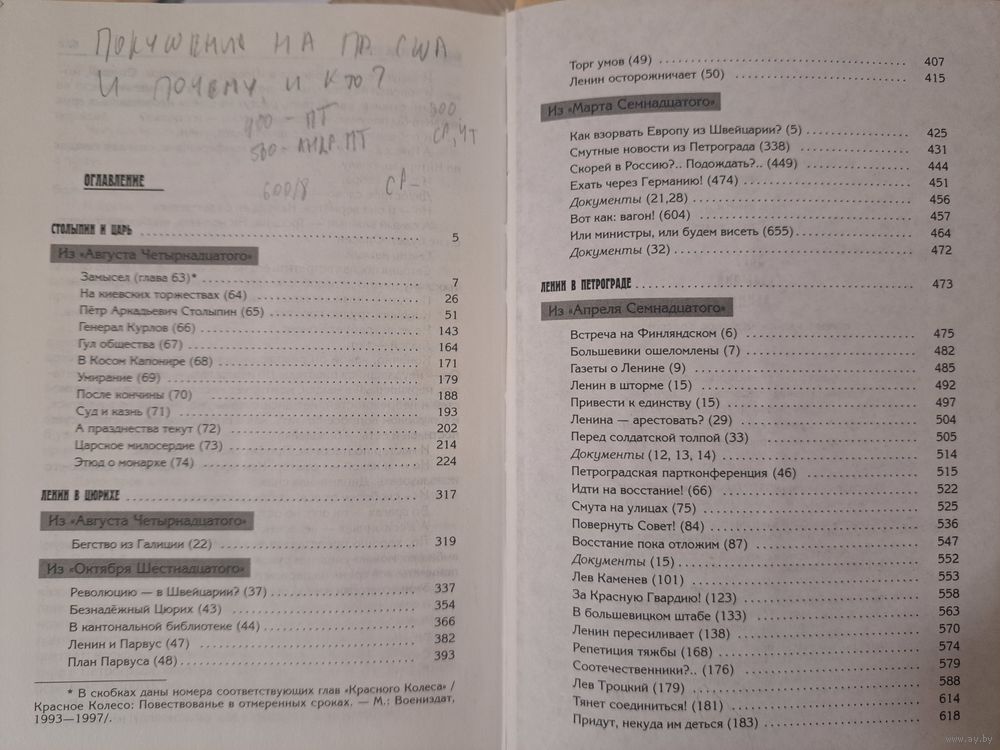 ПОКУШЕНИЯ НА ПР. США
И ПОЧЕМУ, И КТО?
480 - ПТ
500
500- АНДР. ПТ
СР, ЧТ
600/8
СР -
ОГЛАВЛЕНИЕ
СТОЛЫПИН И ЦАРЬ 5
Из «Августа Четырнадцатого»
Замысел (глава 63)* 7
На киевских торжествах (64) 26
Пётр Аркадьевич Столыпин (65) 51
Генерал Курлов (66) 143
Гул общества (67) 164
В Косом Капонире (68) 171
Умирание (69) 179
После кончины (70) 188
Суд и казнь (71) 193
А празднества текут (72) 202
Царское милосердие (73) 214
Этюд о монархе (74) 224
ЛЕНИН В ЦЮРИХЕ 317
Из «Августа Четырнадцатого»
Бегство из Галиции (22) 319
Из «Октября Шестнадцатого»
Революцию — в Швейцарии? (37) 337
Безнадёжный Цюрих (43) 354
В кантональной библиотеке (44) 366
Ленин и Парвус (47) 382
План Парвуса (48) 393
* В скобках даны номера соответствующих глав «Красного Колеса» /
Красное Колесо: Повествованье в отмеренных сроках. — М.: Воениздат,
1993—1997/.
Торг умов (49) 407
Ленин осторожничает (50) 415
Из «Марта Семнадцатого»
Как взорвать Европу из Швейцарии? (5) 425
Смутные новости из Петрограда (338) 431
Скорей в Россию?.. Подождать?.. (449) 444
Ехать через Германию! (474) 451
Документы (21,28) 456
Вот как: вагон! (604) 457
Или министры, или будем висеть (655) 464
Документы (32) 472
ЛЕНИН В ПЕТРОГРАДЕ 473
Из «Апреля Семнадцатого»
Встреча на Финляндском (6) 475
Большевики ошеломлены (7) 482
Газеты о Ленине (9) 485
Ленин в шторме (15) 492
Привести к единству (15) 497
Ленина — арестовать? (29) 504
Перед солдатской толпой (33) 505
Документы (12, 13, 14) 514
Петроградская партконференция (46) 515
Идти на восстание! (66) 522
Смута на улицах (75) 525
Повернуть Совет! (84) 536
Восстание пока отложим (87) 547
Документы (15) 552
Лев Каменев (101) 553
За Красную Гвардию! (123) 558
В большевицком штабе (133) 563
Ленин пересиливает (138) 570
Репетиция тяжбы (168) 574
Соотечественники?.. (176) 579
Лев Троцкий (179) 588
Тянет соединиться! (181) 614
Придут, некуда им деться (183) 618
www.ay.by